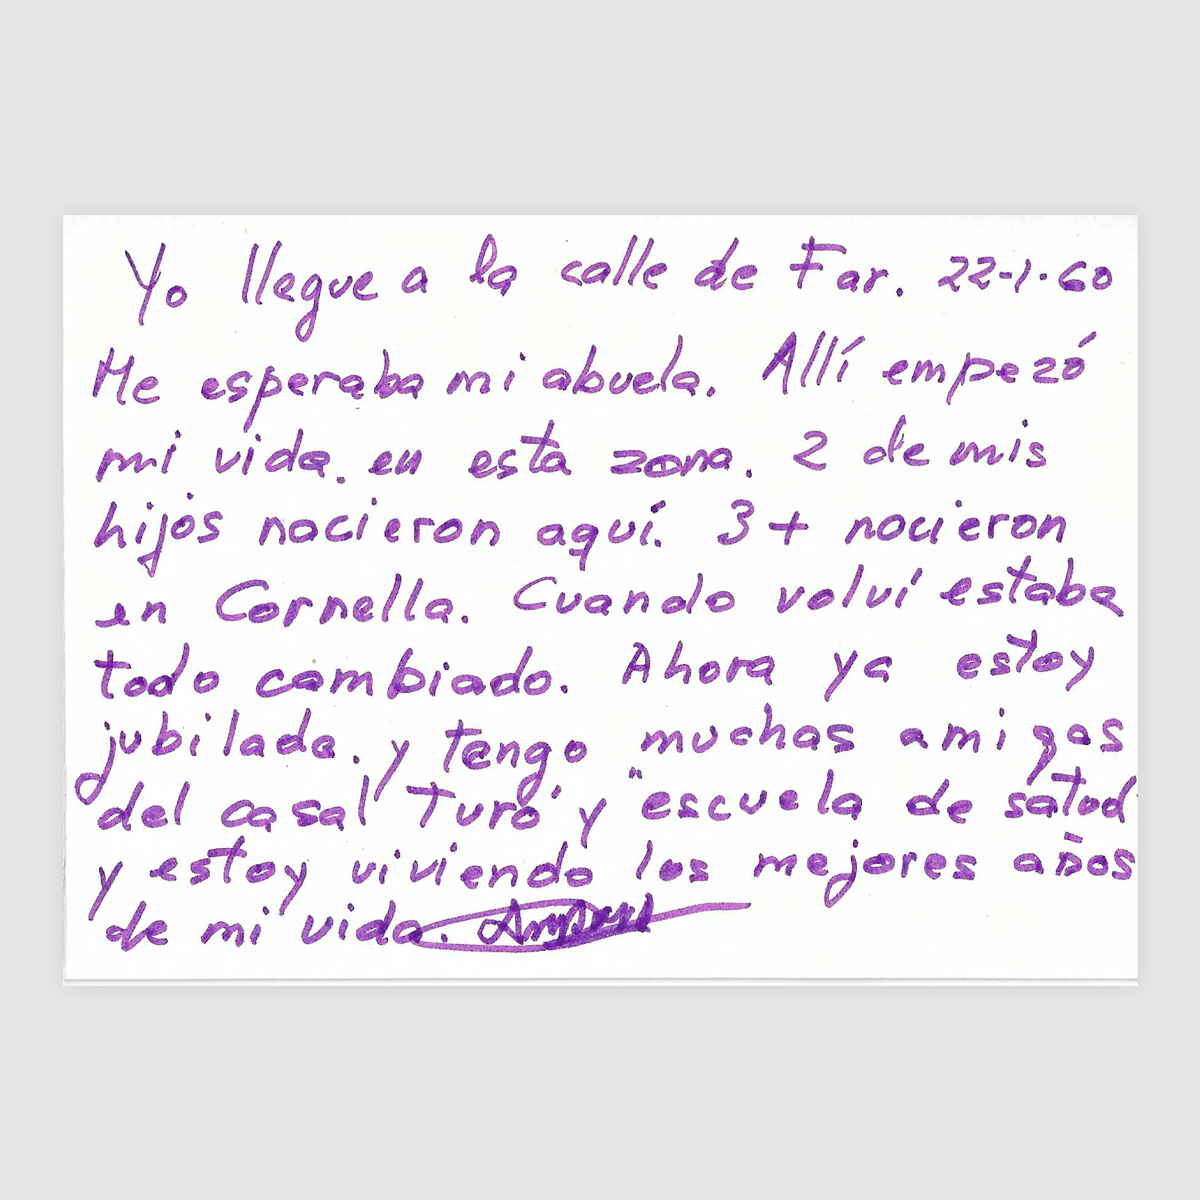 Yo llegue a la calle de Far. 22-1-60
Me esperaba mi abuela. Allí empezó
mi vida. en esta zona. 2 de mis
hijos nacieron aquí. 3 + nacieron
en Cornella. Cuando volví estaba
todo cambiado. Ahora ya estoy
jubilada. y tengo muchas amigas
del casal Turó y "escuela de salud"
y estoy viviendo los mejores años
de mi vida.